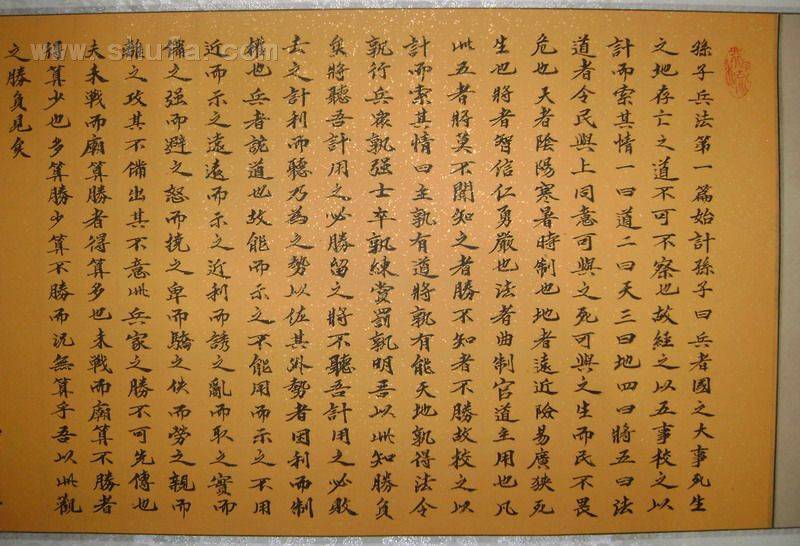 孫子兵法第一篇始計孫子曰兵者國之大事死生
之地存亡之道不可不察也故經之以五事校之以
計而索其情一曰道二曰天三曰地四曰將五曰法
道者令民與上同意可與之死可與之生而民不畏
危也天者陰陽寒暑時制也地者遠近險易廣狹死
生也將者智信仁勇嚴也法者曲制官道主用也凡
此五者將莫不聞知之者勝不知者不勝故校之以
計而索其情曰主孰有道將孰有能天地孰得法令
孰行兵衆孰强士卒孰練賞罰孰明吾以此知勝負
矣將聽吾計用之必勝留之將不聽吾計用之必敗
去之計利而聽乃為之勢以佐其外勢者因利而制
權也兵者詭道也故能而示之不能用而示之不用
近而示之遠遠而示之近利而誘之亂而取之實而
備之强而避之怒而撓之卑而驕之佚而勞之親而
離之攻其不備出其不意此兵家之勝不可先傳也
夫未戰而廟算勝者得算多也未戰而廟算不勝者
得算少也多算勝少算不勝而況無算乎吾以此觀
之勝負見矣